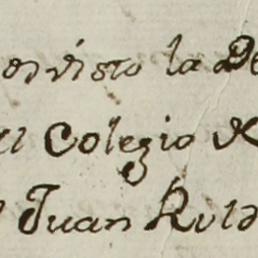 visto la De
el Colegio
Juan Ruld